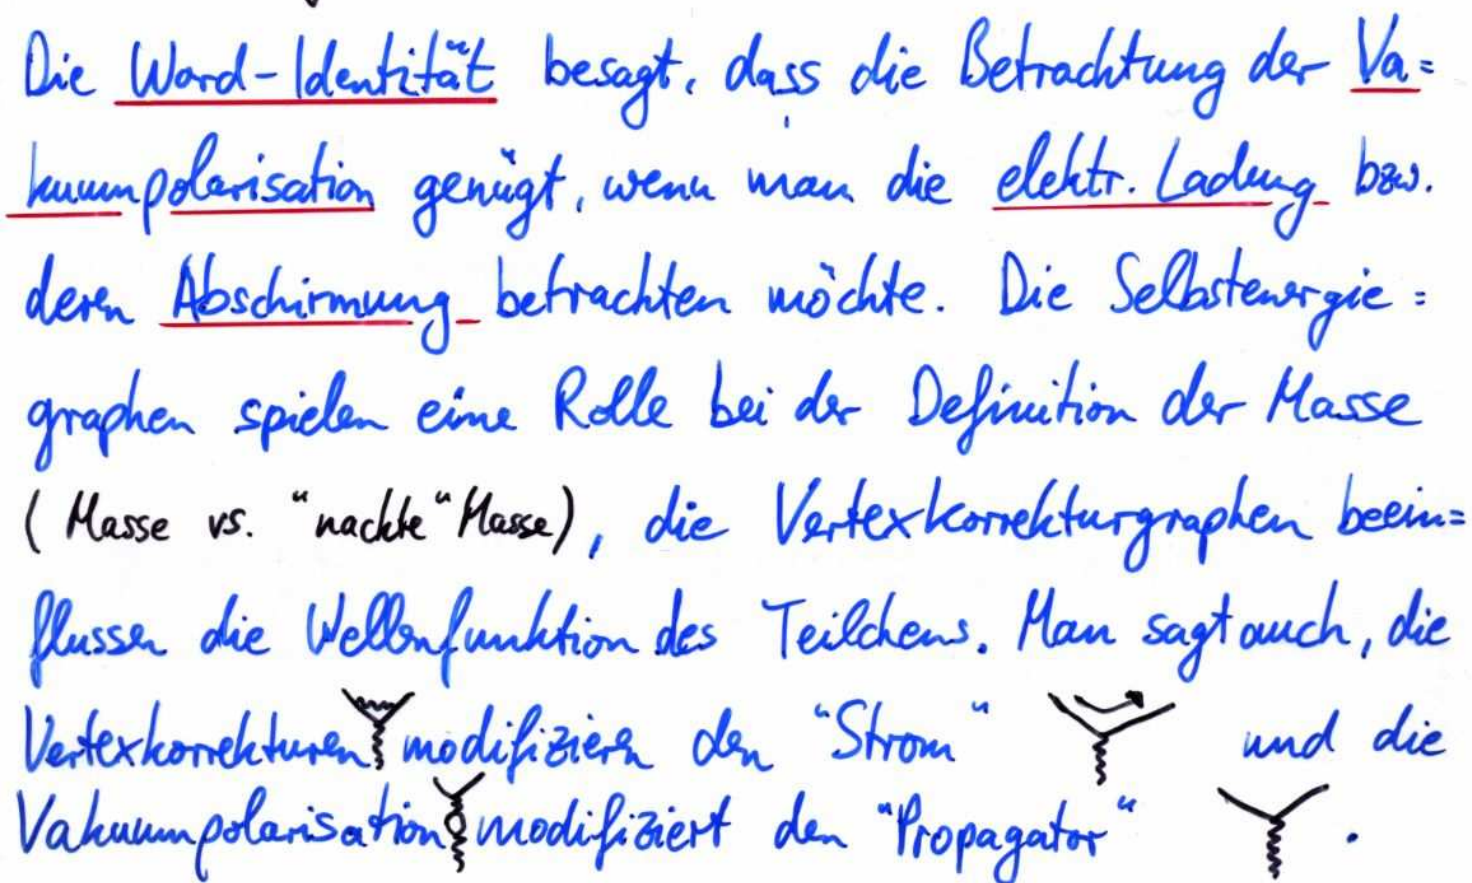 Die Ward-Identität besagt, dass die Betrachtung der Va=
kuumpolarisation genügt, wenn man die elektr. Ladung bzw.
deren Abschirmung betrachten möchte. Die Selbstenergie=
graphen spielen eine Rolle bei der Definition der Masse
(Masse vs. "nackte" Masse), die Vertexkorrekturgraphen beein=
flussen die Wellenfunktion des Teilchens. Man sagt auch, die
Vertexkorrekturen modifizieren den "Strom" und die
Vakuumpolarisation modifiziert den "Propagator" .